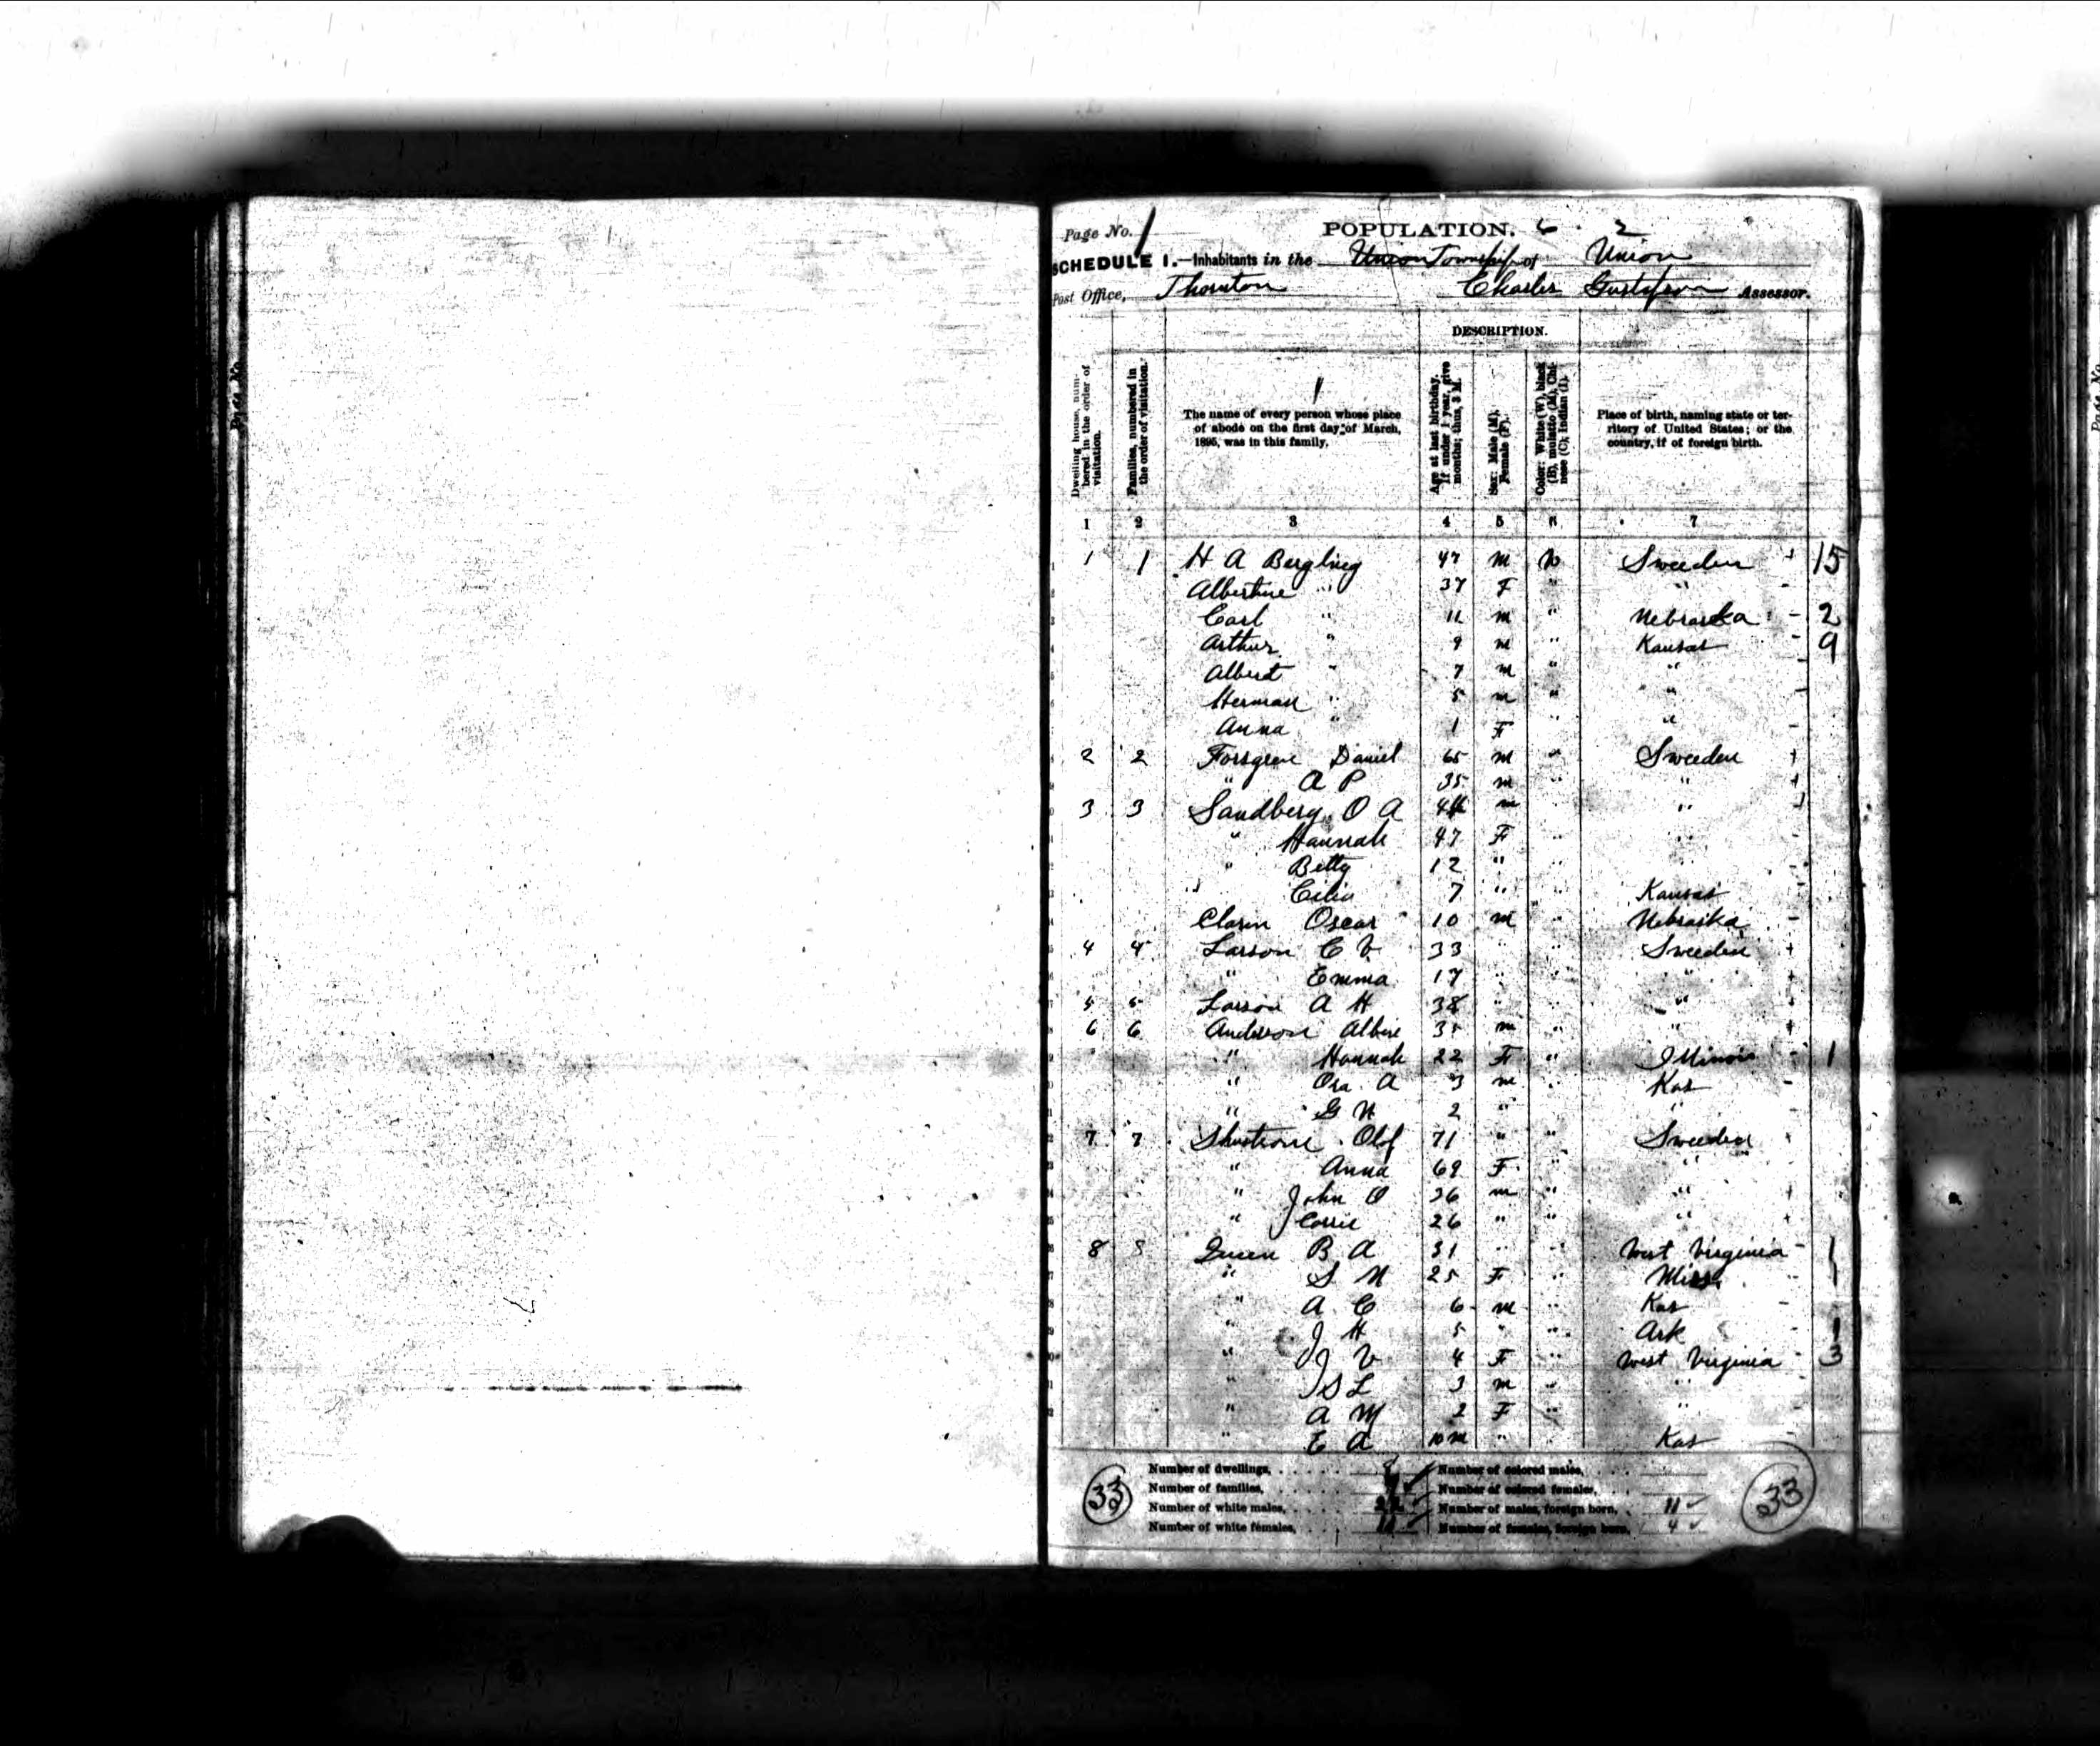 Page No. 1 POPULATION. 6 2
SCHEDULE 1.—Inhabitants in the Union Township of Union
Post Office, Thornton Charles Gustafson Assessor.
DESCRIPTION.
Dwelling house, numbered in the order of visitation.
Families, numbered in the order of visitation.
The name of every person whose place of abode on the first day of March, 1895, was in this family.
Age at last birthday. If under 1 year, give months; thus, 3 M.
Sex: Male (M), Female (F).
Color: White (W), black (B), mulatto (M), Chinese (C), Indian (I).
Place of birth, naming state or territory of United States; or the country, if of foreign birth.
1 2 3 4 5 6 7
1 1 H A Bergling 47 m W Sweeden + 15
Albertine " 37 F " " -
Carl " 11 m " Nebraska - 2
Arthur " 9 m " Kansas - 9
Albert " 7 m " " -
Herman " 5 m " " -
Anna " 1 F " " -
2 2 Forsgren Daniel 65 m " Sweeden +
" A P 35 m " " +
3 3 Sandberg O A m " "
" Hannah 47 F " " -
" Betty 12 " " " -
" Cilia 7 " " Kansas -
Oscar 10 m " Nebraska -
4 4 Larson C V 33 " " Sweeden +
" Emma 17 " " " +
5 5 Larson A H 38 " " " +
6 6 Anderson Albin 35 m " " +
" Hannah 22 F " Illinois - 1
" Ora A 3 m " Kas -
" G N 2 " " " -
7 7 Olof 71 " " Sweeden +
" Anna 69 F " "
" John O 36 m " " +
" Corrie 26 " " " +
8 8 Queen B A 31 " " West Virginia - 1
" S N 25 F " - 1
" A C 6 m " Kas -
" J H 5 " " Ark - 1
" J V 4 F " West Virginia - 3
" S L 3 m " " -
" A M 2 F " " -
" E A 10 m " " Kas -
33 Number of dwellings, 8 Number of colored males, 33
Number of families, Number of colored females,
Number of white males, 22 Number of males, foreign born, 11
Number of white females, 11 Number of females, foreign born, 4
Page No.